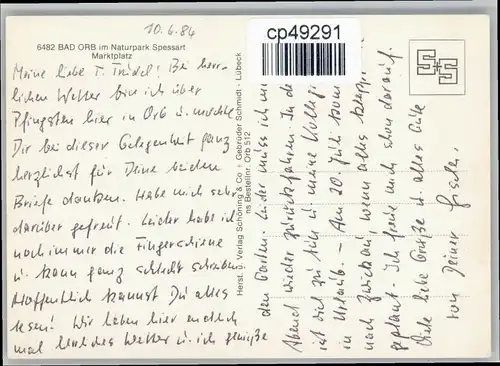 10.6.84
cp49291
6482 BAD ORB im Naturpark Spessart
Marktplatz
Meine liebe T. Trudel! Bei herr-
lichem Wetter bin ich über
Pfingsten hier in Orb u. möchte
Dir bei dieser Gelegenheit ganz
herzlichst für Deine beiden
Briefe danken. Habe mich sehr
darüber gefreut. Leider habe ich
noch immer die Fingerschiene
u. kann ganz schlecht schreiben
Hoffentlich kannst Du alles
lesen! Wir haben hier endlich
mal schönes Wetter u. ich genieße
Herst. u. Verlag Schöning & Co + Gebrüder Schmidt · Lübeck
ns Bestellnr. Orb 512
den Garten. Leider muss ich m
Abend wieder zurückfahren. In de
ist viel zu tun u. meine Kollegi
in Urlaub. – Am 20. Juli kom
nach Zwickau, wenn alles klappt
geplant. Ich freue mich schon darauf.
Viele liebe Grüße u. alles Gute
von Deiner